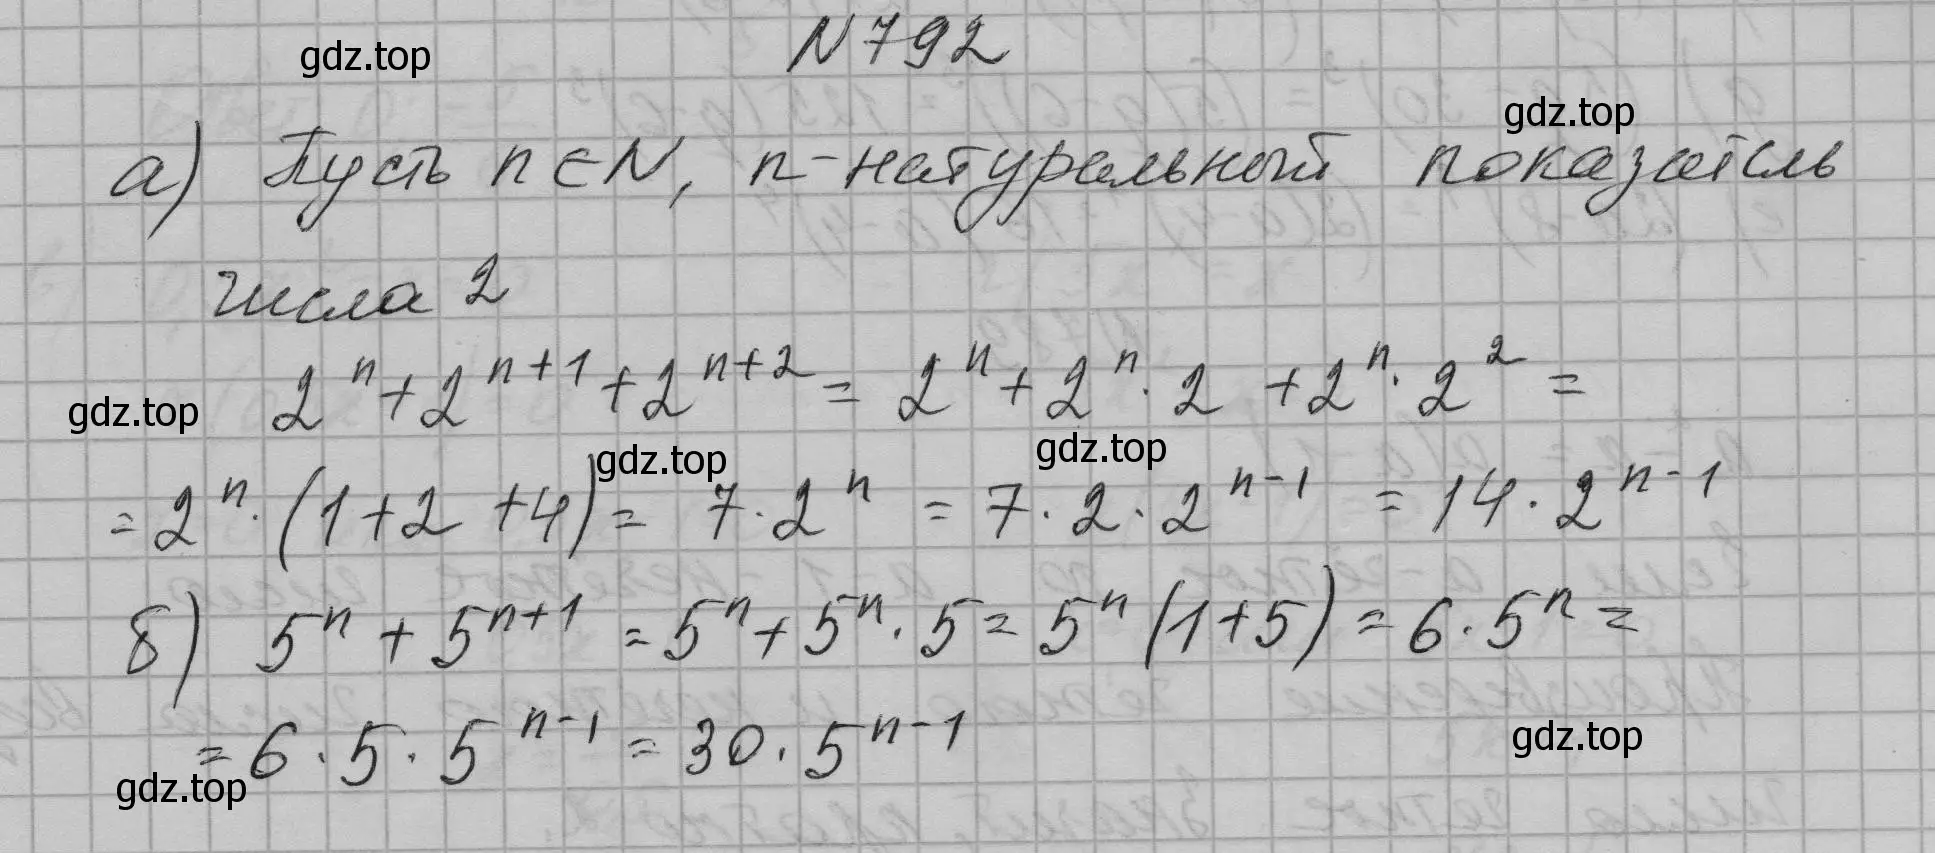 N 792
gdz.top
gdz.top
а) Пусть n∈N, n-натуральный показатель
числа 2
2^n + 2^{n+1} + 2^{n+2} = 2^n + 2^n · 2 + 2^n · 2^2 =
gdz.top
gdz.top
gdz.top
= 2^n · (1+2+4) = 7 · 2^n = 7 · 2 · 2^{n-1} = 14 · 2^{n-1}
б) 5^n + 5^{n+1} = 5^n + 5^n · 5 = 5^n (1+5) = 6 · 5^n =
= 6 · 5 · 5^{n-1} = 30 · 5^{n-1}
gdz.top
gdz.top